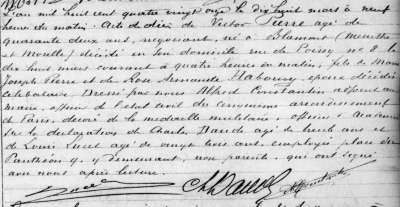 L'an mil huit cent quatre vingt onze le dix huit mars à neuf
heures du matin. Acte de décès de Victor Pierre agé de
quarante deux ans, négociant, né à Blamont (Meurthe
et Moselle) décédé en son domicile rue de Poissy no 2 le
dix huit mars courant à quatre heures du matin, fils de
Joseph Pierre et de Rose Armande Habourg, époux décédés
célibataire. Dressé par nous Alfred Constantin adjoint au
maire, officier de l'état civil du cinquième arrondissement
de Paris, décoré de la médaille militaire, officier d'académie
sur la déclaration de Charles Daude agé de trente ans et
de Louis Sucet agé de vingt trois ans, employés place du
Panthéon 9, y demeurant, non parents, qui ont signé
avec nous après lecture.